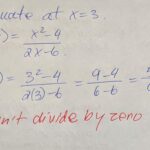 uate at x=3.
) = x²-4 / 2x-6.
) = 3²-4 / 2(3)-6 = 9-4 / 6-6 =
n't divide by zero